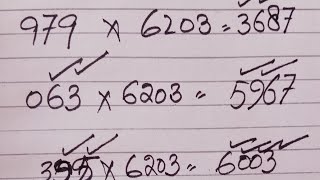 979 × 6203 = 3687
063 × 6203 = 5967
× 6203 = 6003